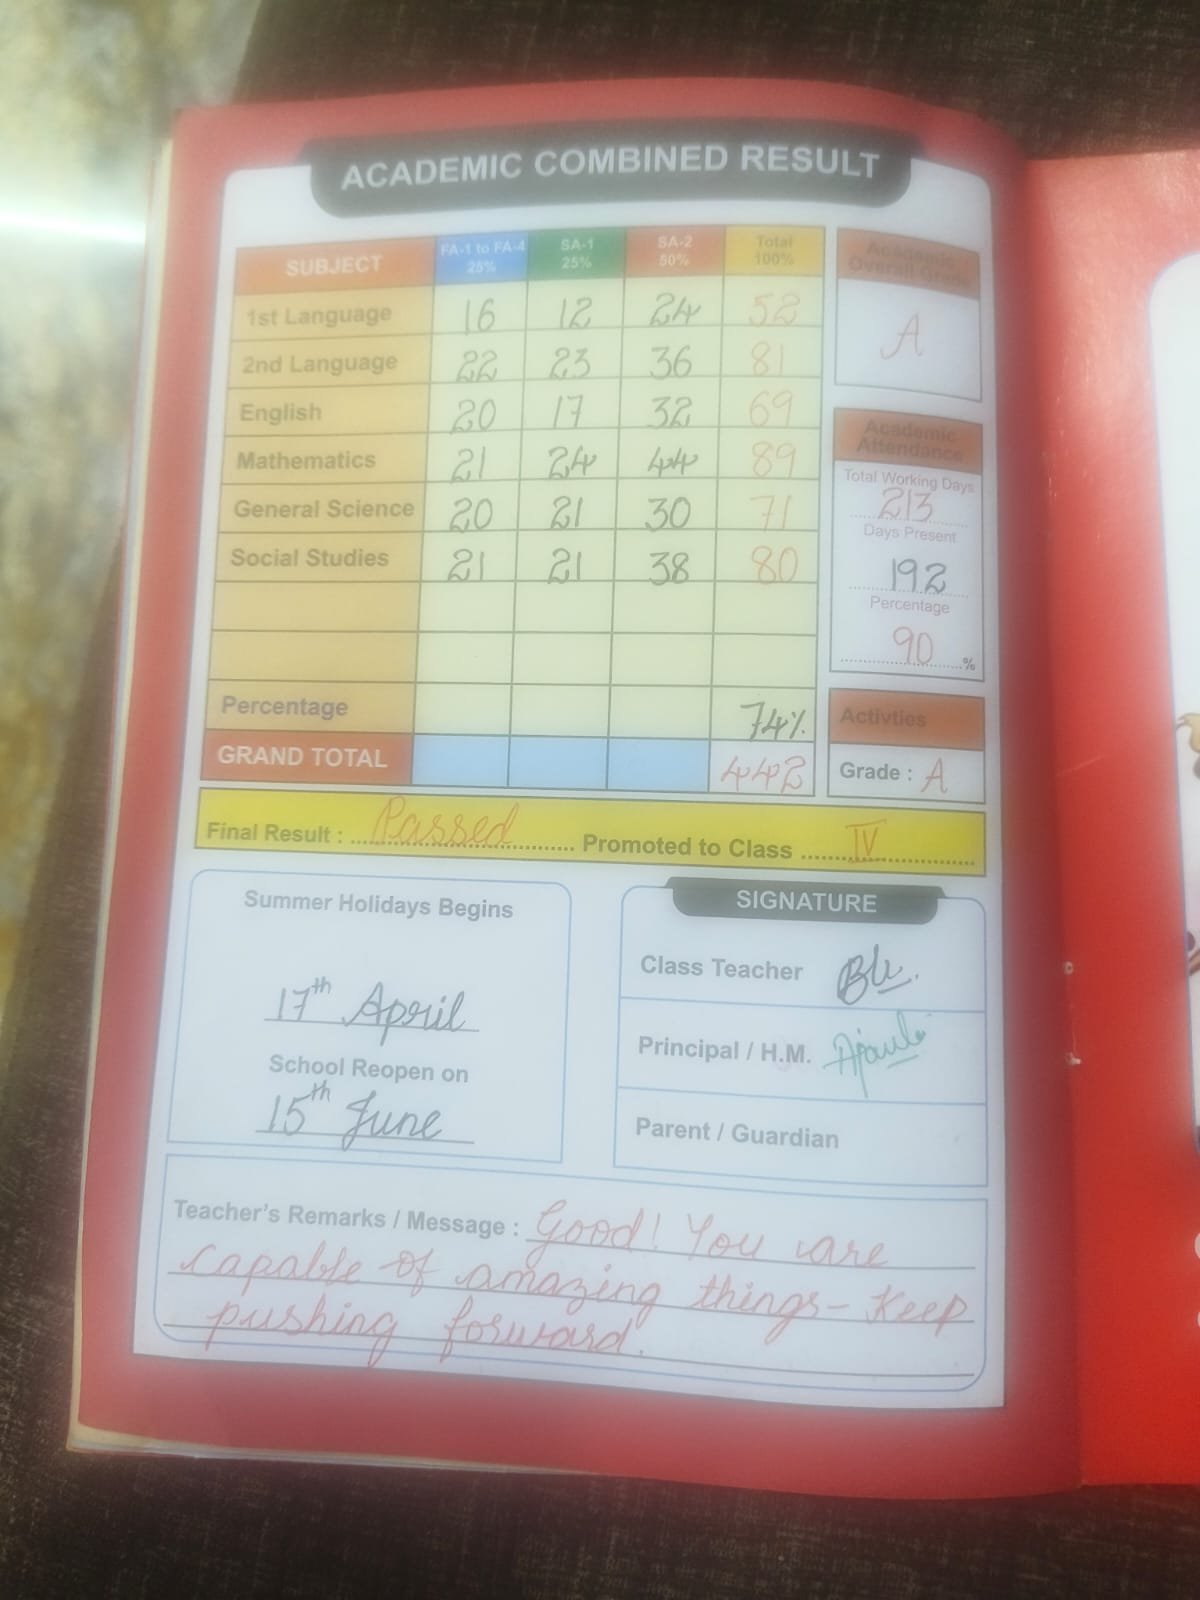 ACADEMIC COMBINED RESULT
SUBJECT FA-1 to FA-4 25% SA-1 25% SA-2 50% Total 100%
1st Language 16 12 24 52
2nd Language 22 23 36 81
English 20 17 32 69
Mathematics 21 24 44 89
General Science 20 21 30 71
Social Studies 21 21 38 80
Percentage 74%
GRAND TOTAL 442
Academic
Overall Grade
A
Academic
Attendance
Total Working Days
213
Days Present
192
Percentage
90 %
Activties
Grade : A
Final Result : Passed Promoted to Class IV
Summer Holidays Begins
17th April
School Reopen on
15th June
SIGNATURE
Class Teacher
Principal / H.M.
Parent / Guardian
Teacher's Remarks / Message : Good! You are
capable of amazing things- Keep
pushing forward.